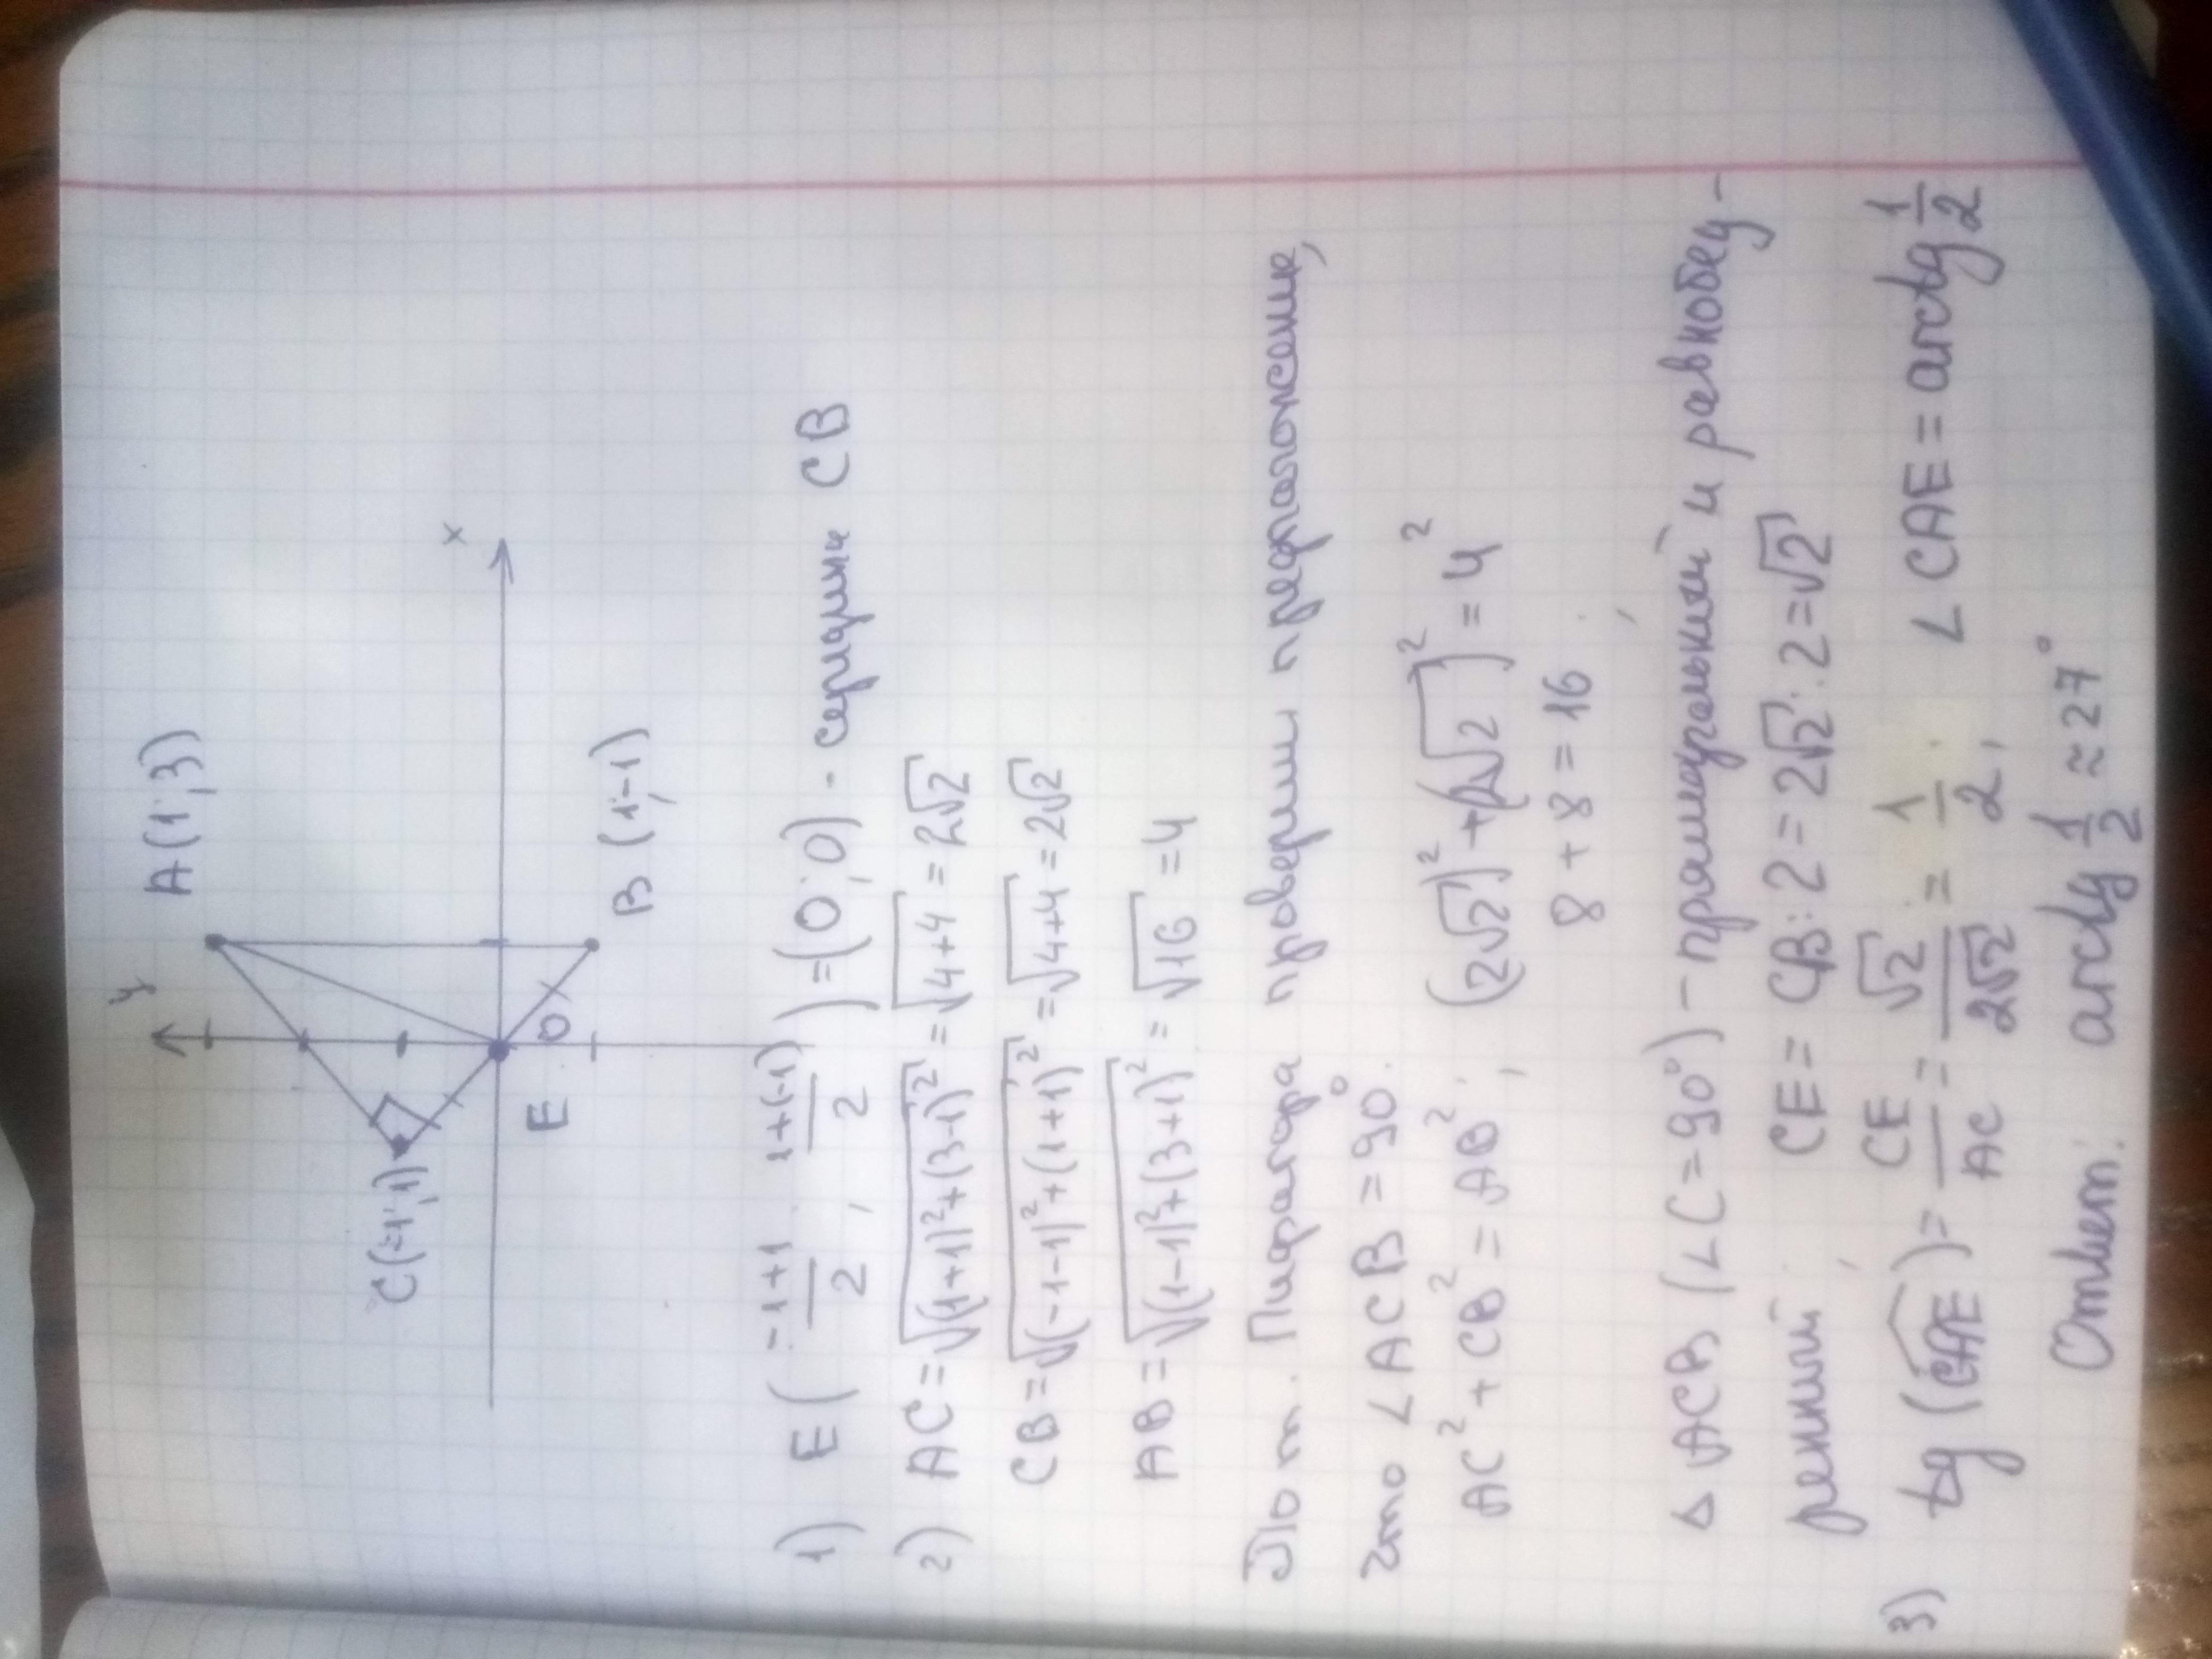 y
A(1;3)
C(-1;1)
x
E O
B(1;-1)
1) E(\frac{-1+1}{2}; \frac{1+(-1)}{2})=(0;0) - середина CB
2) AC=√((1+1)²+(3-1)²)=√(4+4)=2√2
CB=√((-1-1)²+(1+1)²)=√(4+4)=2√2
AB=√((1-1)²+(3+1)²)=√16=4
По т. Пифагора проверим предположение,
что ∠ACB=90°.
AC²+CB²=AB²; (2√2)²+(2√2)²=4²
8+8=16;
△ACB (∠C=90°) - прямоугольный и равнобед-
ренный; CE=CB:2=2√2:2=√2
3) tg(CAE)=\frac{CE}{AC}=\frac{√2 1}{2√2}=\frac{1}{2}; ∠CAE=arctg\frac{1}{2}
Ответ: arctg\frac{1}{2}≈27°